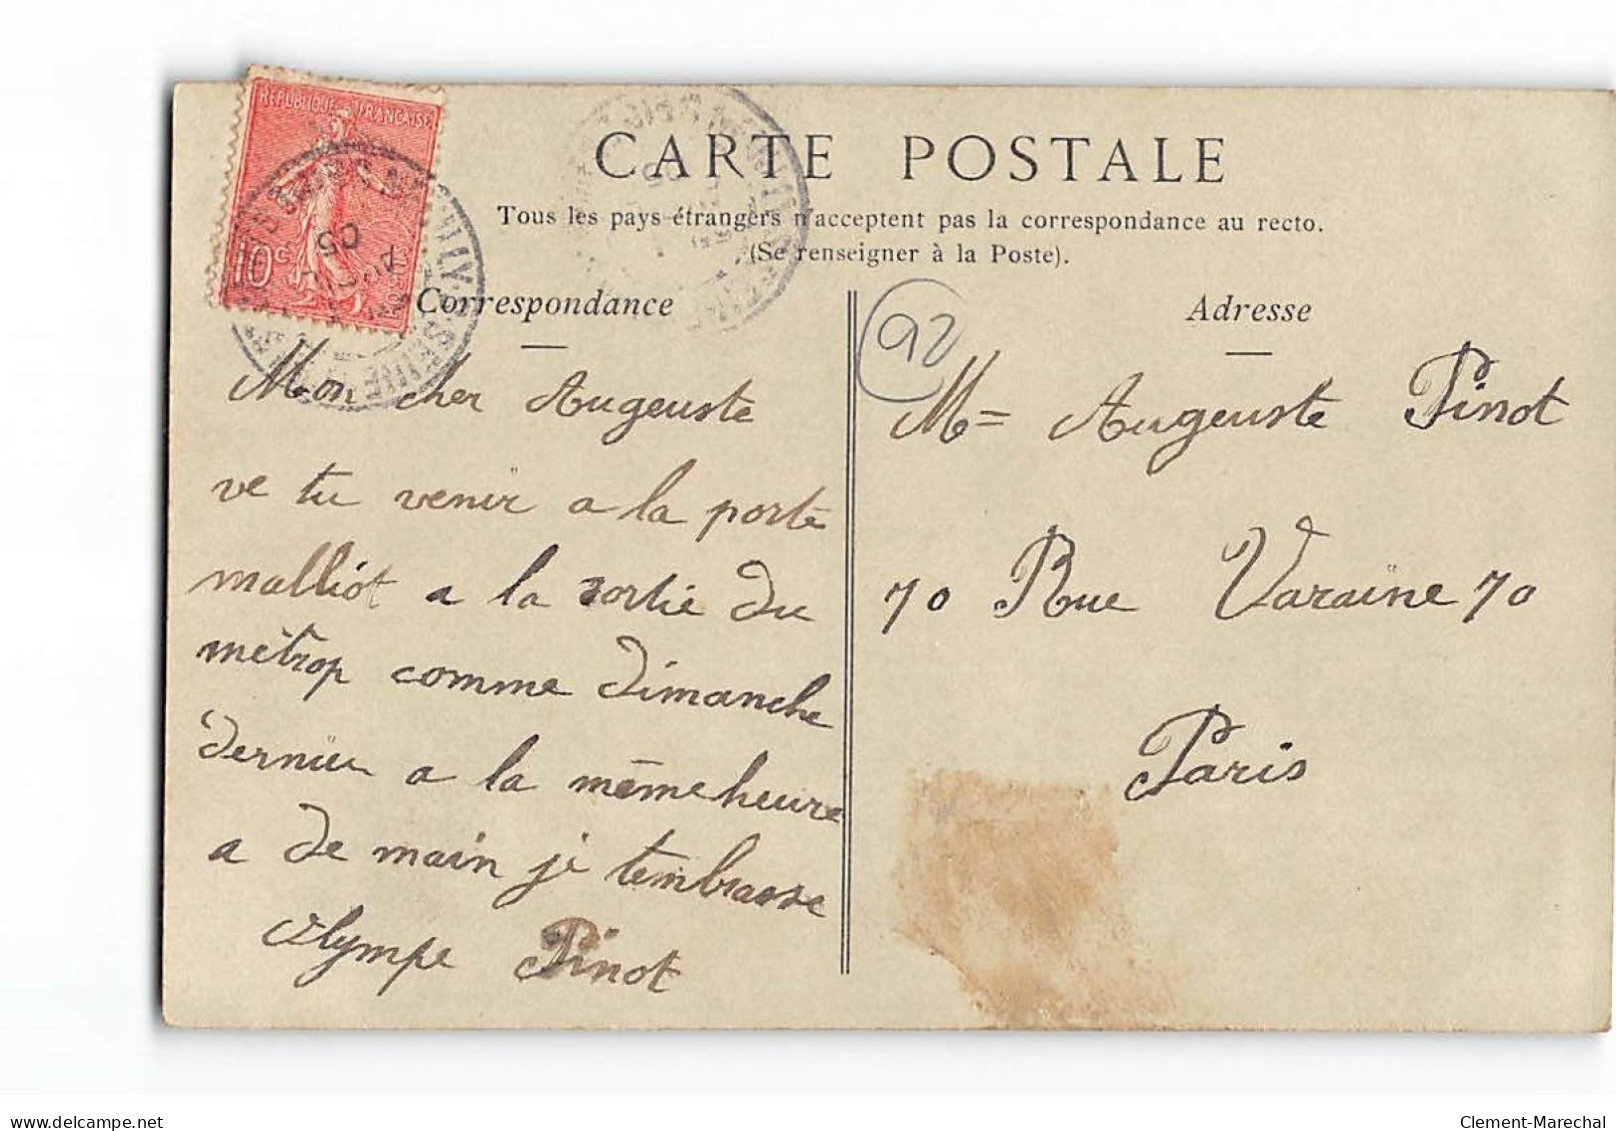 RÉPUBLIQUE FRANÇAISE
10c
CARTE POSTALE
Tous les pays étrangers n'acceptent pas la correspondance au recto.
(Se renseigner à la Poste).
Correspondance
Mon cher Augeuste
ve tu venir a la porte
malliot a la sortie du
métrop comme dimanche
dernier a la même heure
a de main je tembrasse
Olympe Pinot
92
Adresse
M= Augeuste Pinot
70 Rue Varaine 70
Paris
delcampe.net
Clement-Marechal